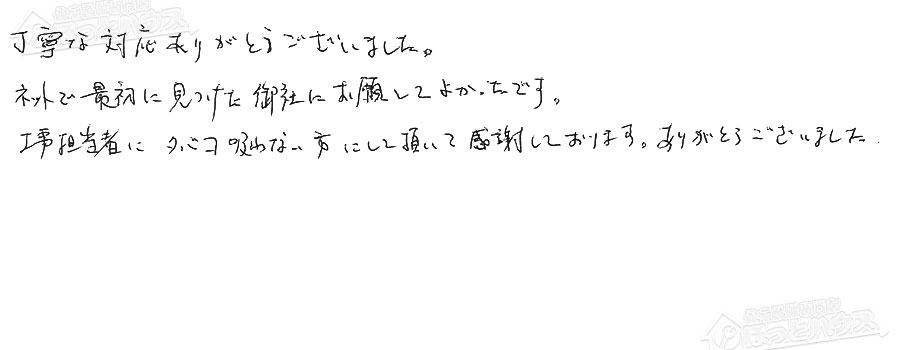 丁寧な対応ありがとうございました。
ネットで最初に見つけた御社にお願いしてよかったです。
工事担当者にタバコ吸わない方にして頂いて感謝しております。ありがとうございました
住宅設備専門店
ほっとハウス